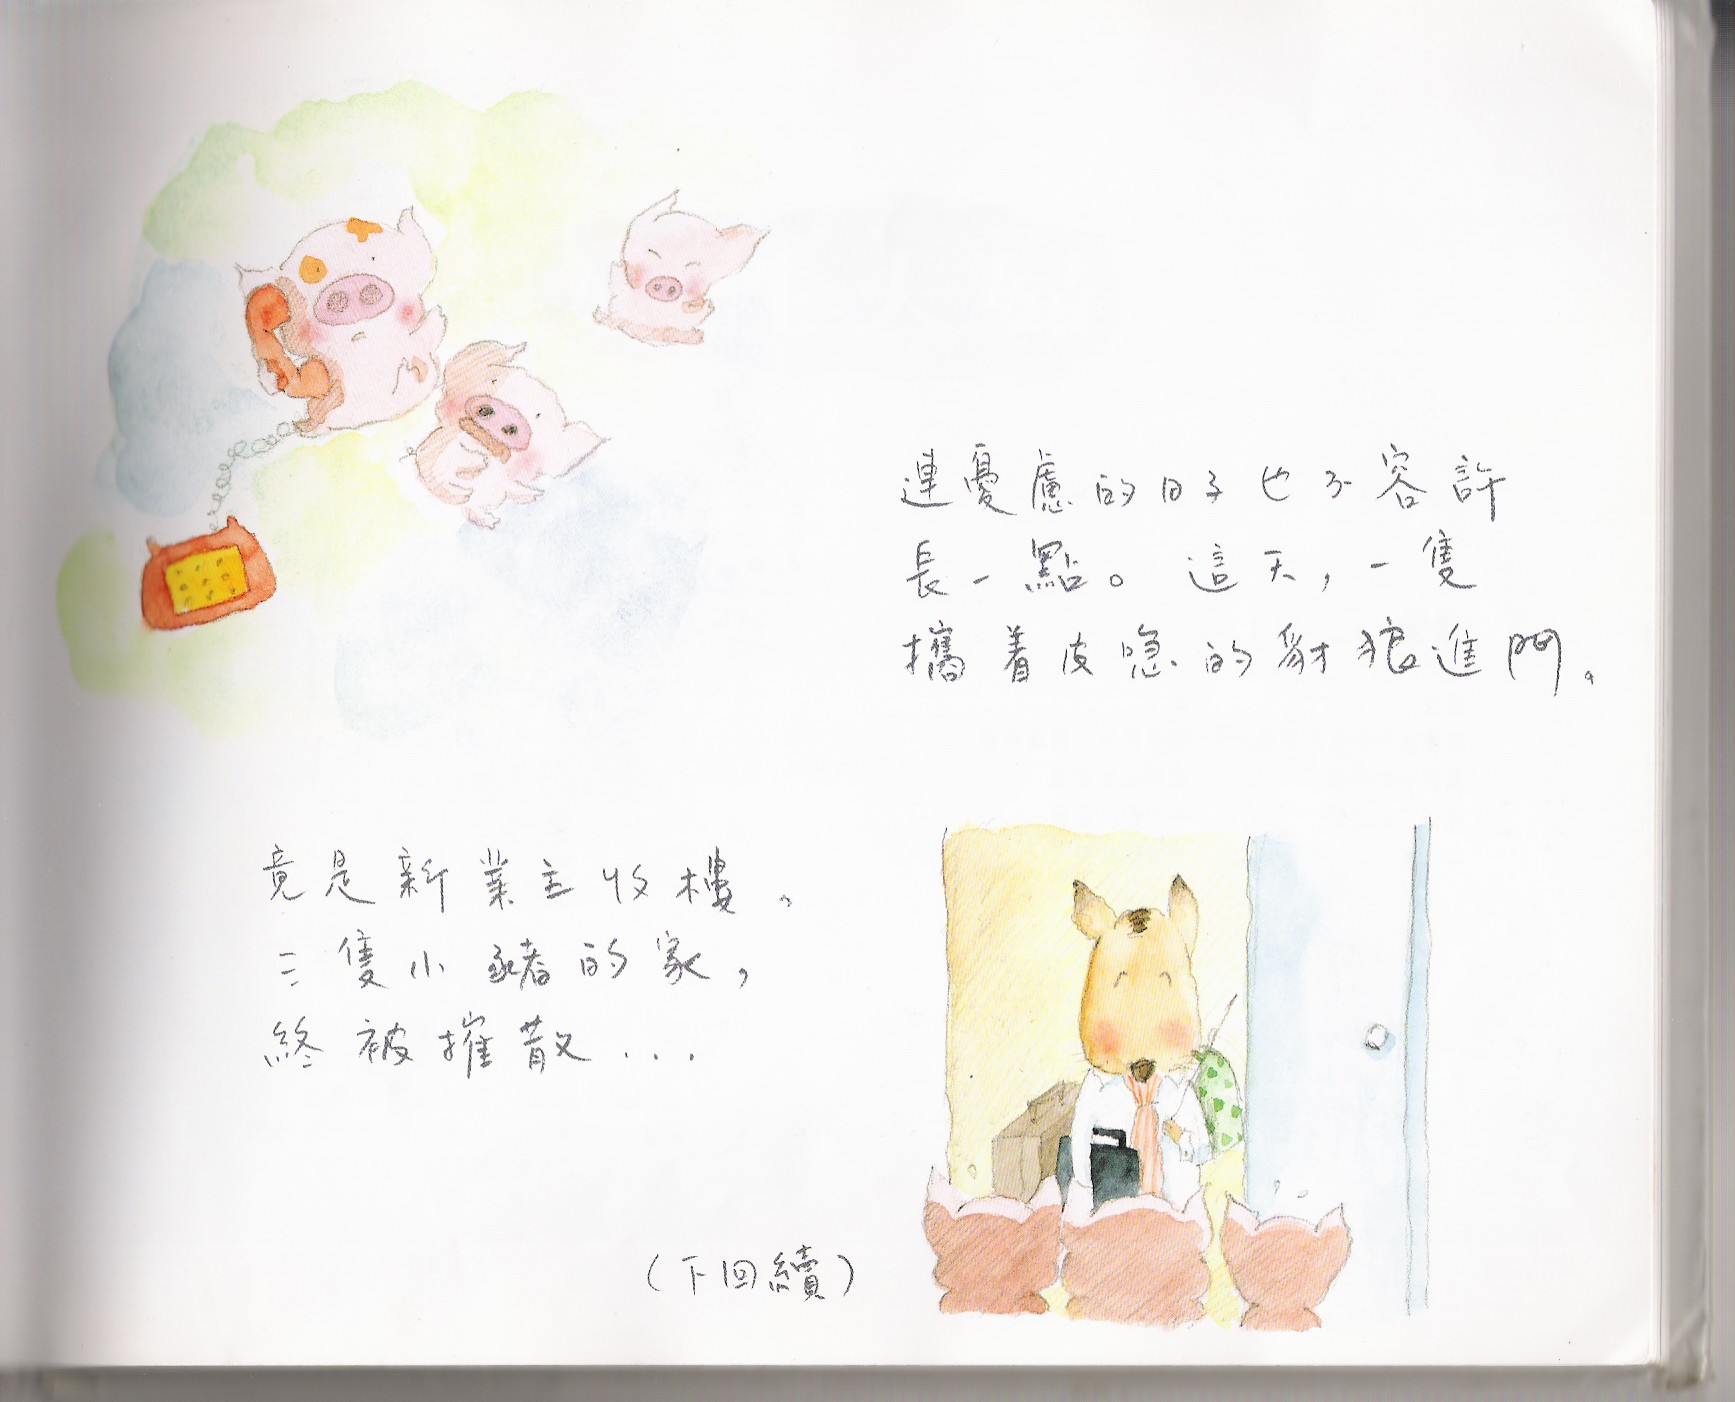 連憂慮的日子也不容許
長一點。這天，一隻
攜着皮喼的豺狼進門。
竟是新業主收樓。
三隻小豬的家，
終被摧散...
（下回續）